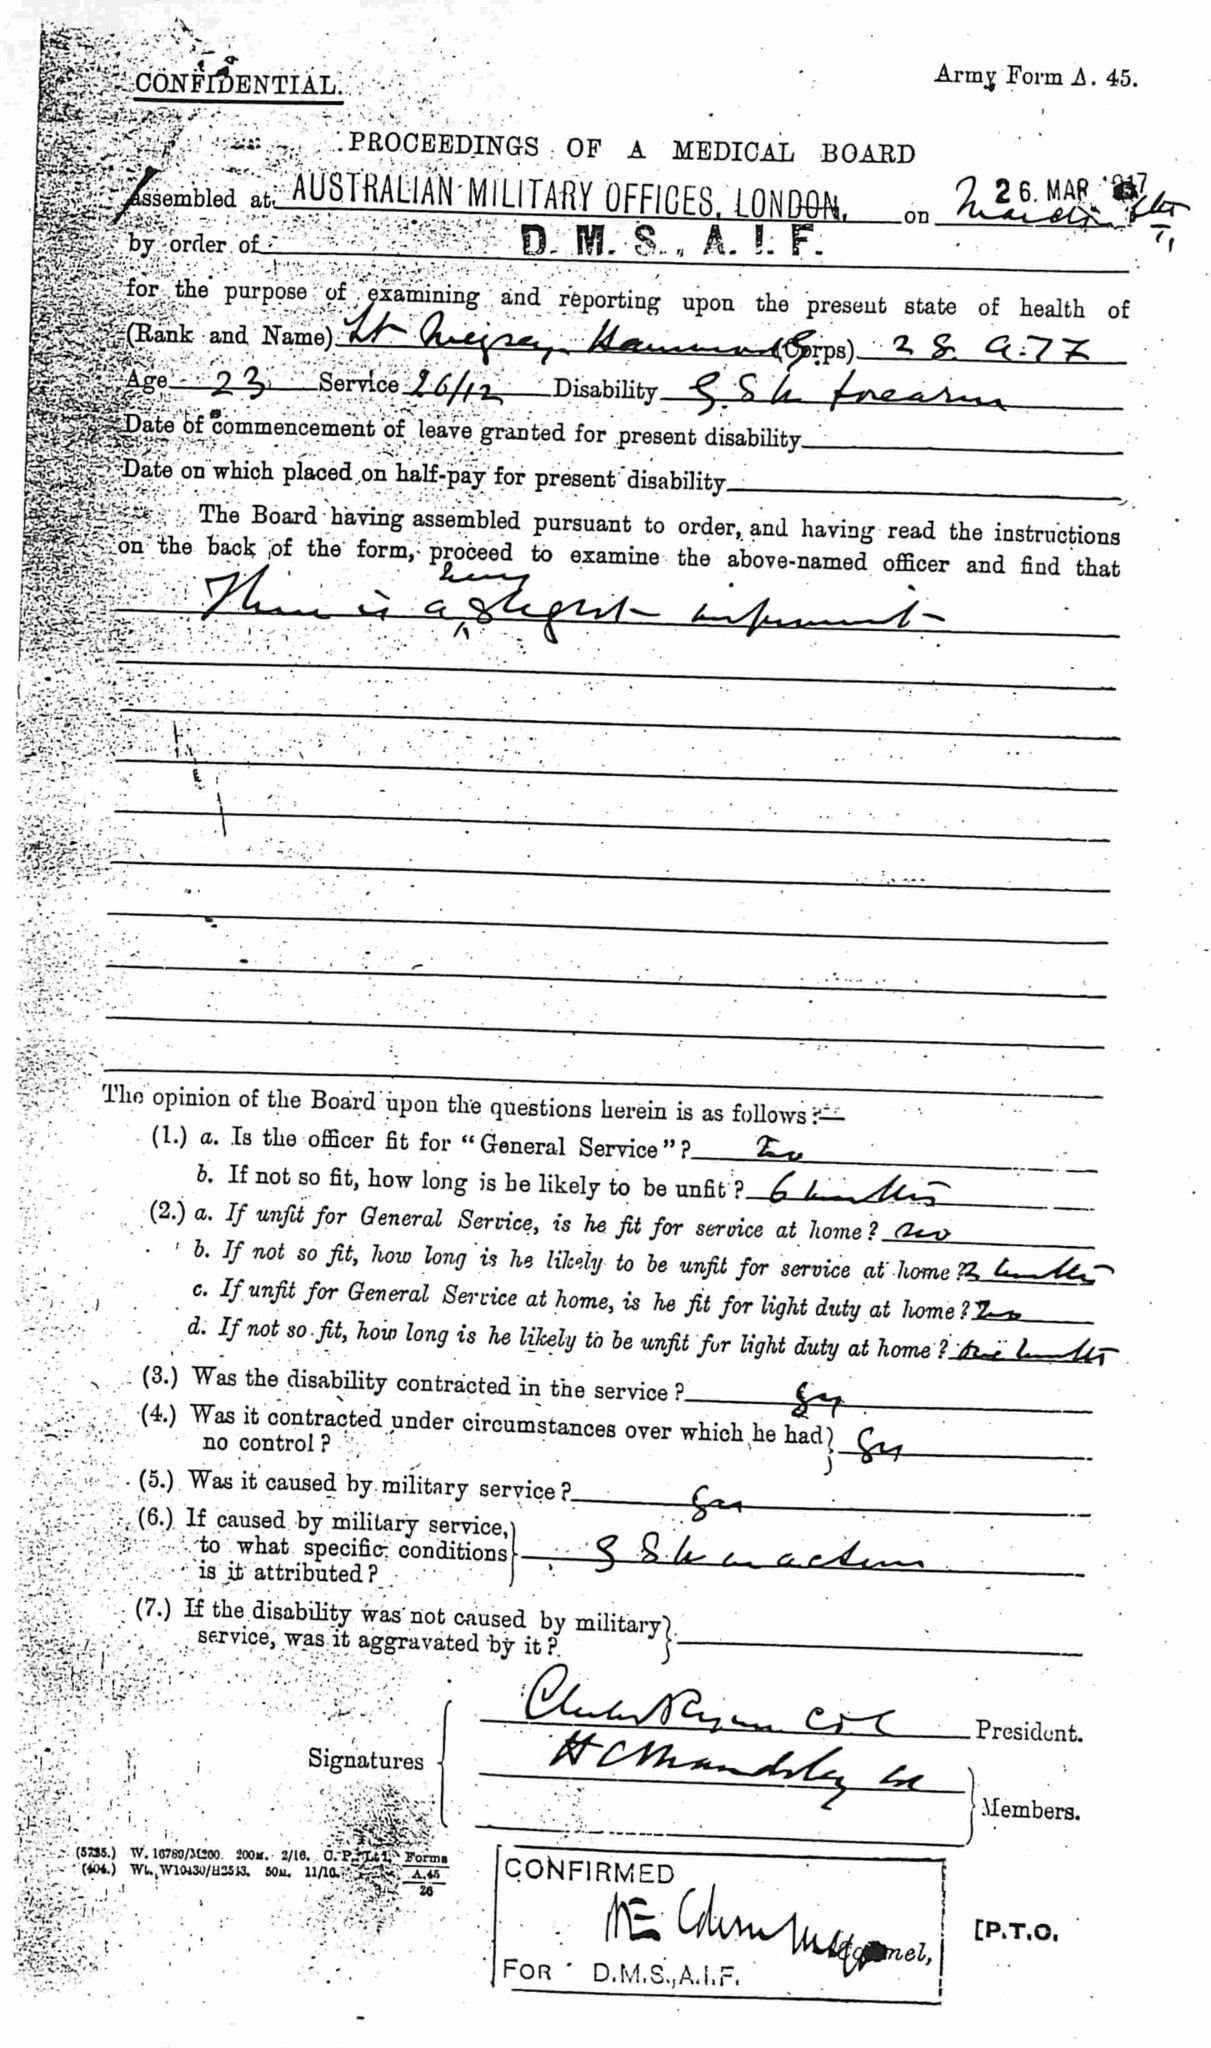 CONFIDENTIAL.
Army Form A. 45.
PROCEEDINGS OF A MEDICAL BOARD
Assembled at AUSTRALIAN MILITARY OFFICES, LONDON. on 26. MAR 1917
by order of D. M. S., A. I. F.
for the purpose of examining and reporting upon the present state of health of
(Rank and Name) Lt Hammond (Corps) 28. A.I.F
Age 23 Service 26/12 Disability G.S.W forearm
Date of commencement of leave granted for present disability
Date on which placed on half-pay for present disability
The Board having assembled pursuant to order, and having read the instructions
on the back of the form, proceed to examine the above-named officer and find that
very
There is a slight improvement
The opinion of the Board upon the questions herein is as follows:—
(1.) a. Is the officer fit for "General Service"? No
b. If not so fit, how long is he likely to be unfit? 6 months
(2.) a. If unfit for General Service, is he fit for service at home? No
b. If not so fit, how long is he likely to be unfit for service at home? months
c. If unfit for General Service at home, is he fit for light duty at home? No
d. If not so fit, how long is he likely to be unfit for light duty at home? months
(3.) Was the disability contracted in the service? Yes
(4.) Was it contracted under circumstances over which he had
no control? Yes
(5.) Was it caused by military service? Yes
(6.) If caused by military service,
to what specific conditions G S W in action
is it attributed?
(7.) If the disability was not caused by military
service, was it aggravated by it?
Charles Ryan Col President.
Signatures
H C Maudsley Col
Members.
(5735.) W. 16780/M200. 200M. 2/16. Forms
(404.) Wt. W10430/H2513. 50M. 11/16. A.45
26
CONFIRMED
[P.T.O.
FOR D.M.S., A.I.F.